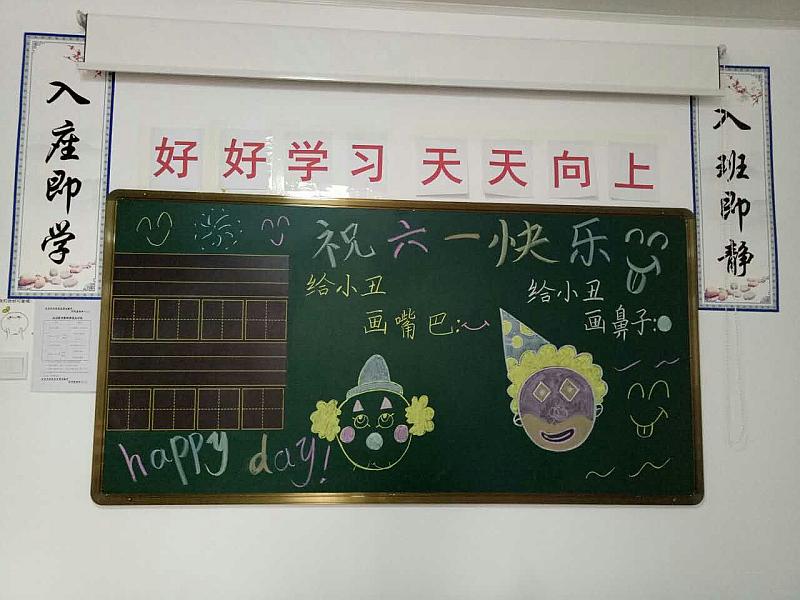 入座即学
好好学习 天天向上
入班即静
祝六一快乐
给小丑
画嘴巴:
给小丑
画鼻子:
happy day!